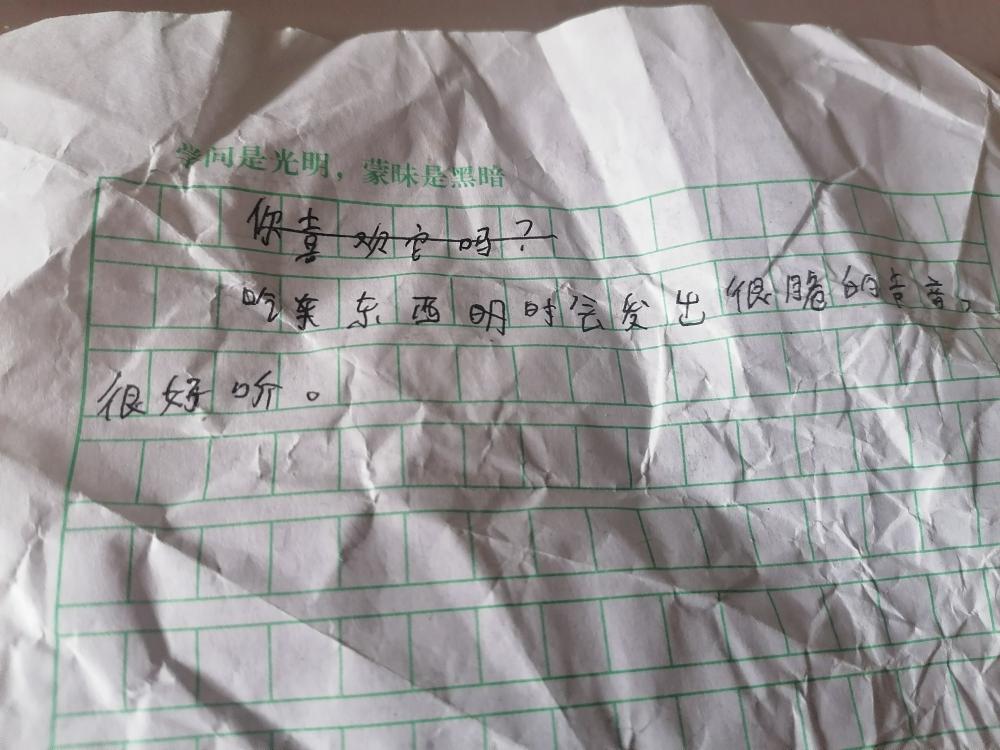 学问是光明，蒙昧是黑暗
你喜欢它吗？
吃来东西明时会发出很脆的声音，
很好听。